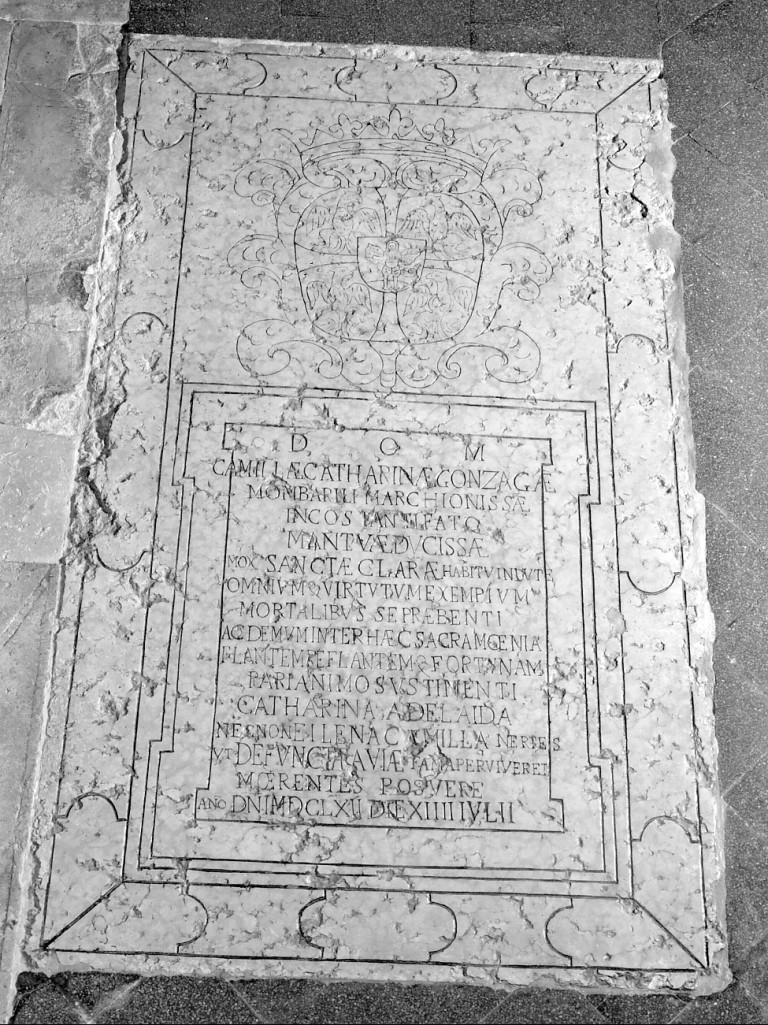 D O M
CAMILLÆ CATHARINÆ GONZAGÆ
MONBARILI MARCHIONISSÆ
INCOSTANTI FATO
MANTVÆ DVCISSÆ
MOX SANCTÆ CLARÆ HABITV INDVTÆ
OMNIVMQ VIRTVTVM EXEMPIVM
MORTALIBVS SE PRÆBENTI
AC DEMVM INTER HÆC SACRA MŒNIA
FLANTEM REFLANTEMQ FORTVNAM
PARI ANIMO SVSTINENTI
CATHARINA ADELAIDA
NECNON CAMILLA NEPTES
VT DEFVNCTA AVIÆ FAMA PERVIVERET
MŒRENTES POSVERE
ANNO DNI MDCLXII DIE XIIIII IVLII